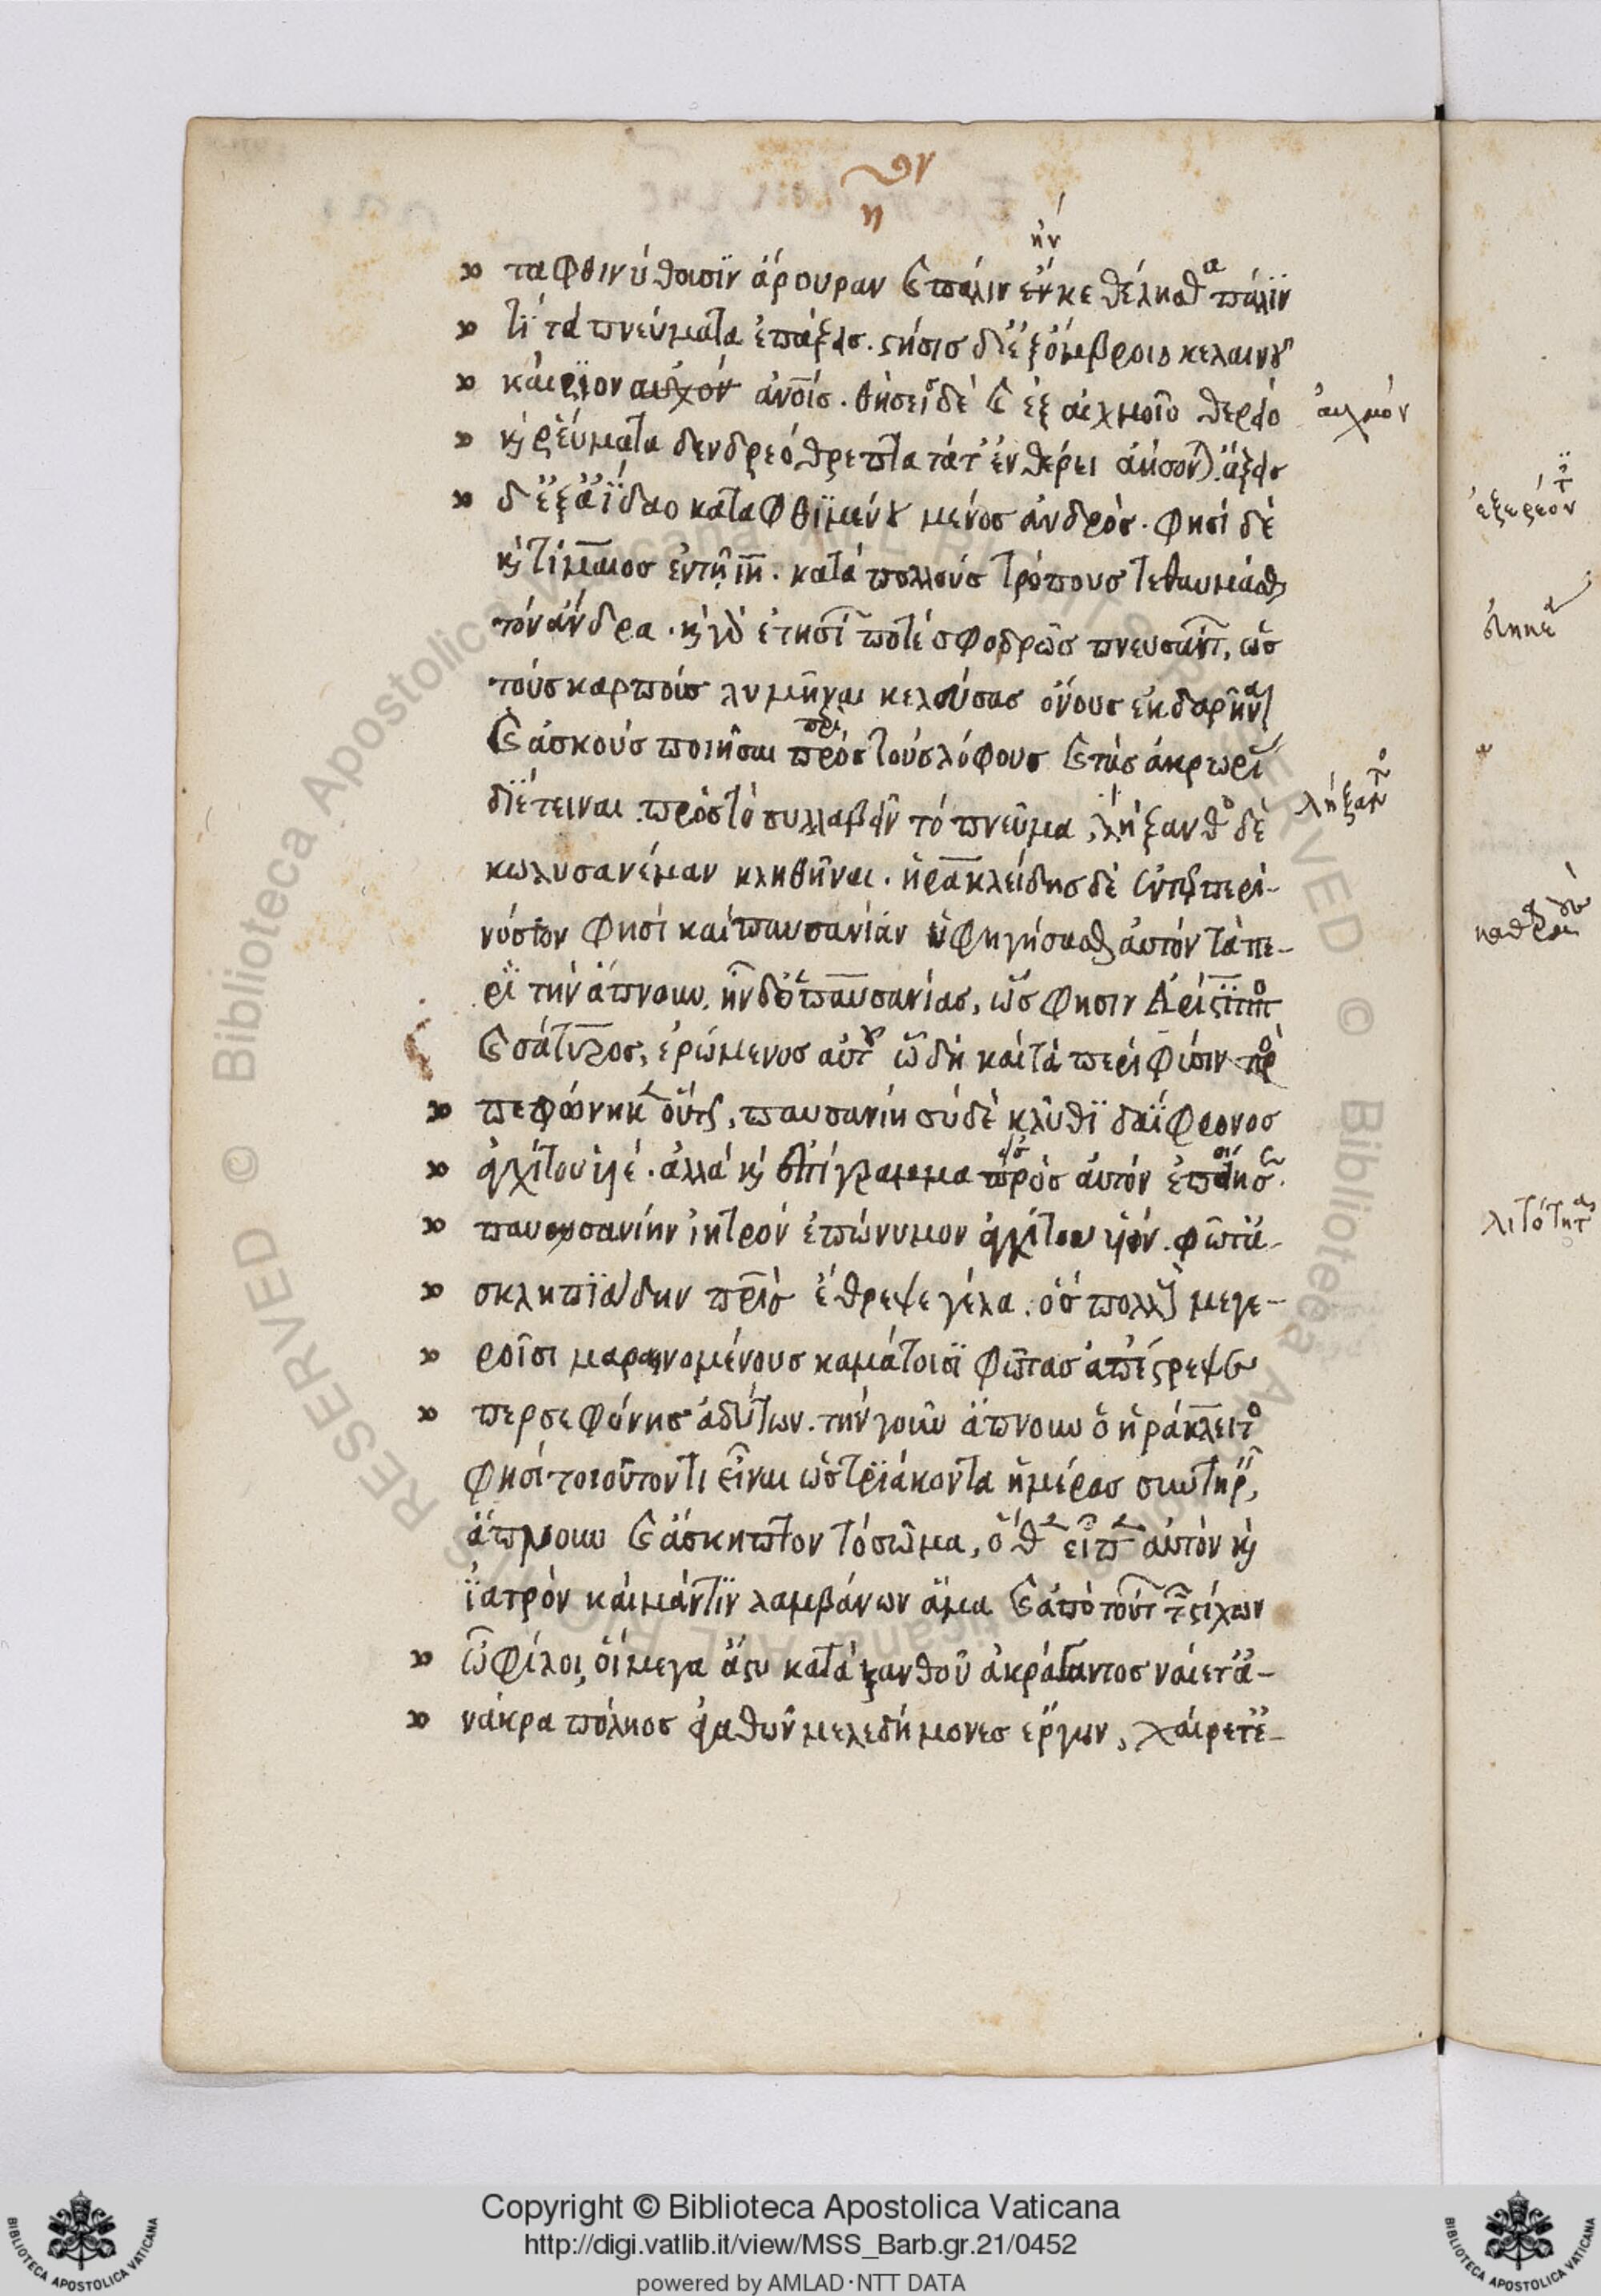 βν
η
ήν
τα φθινύθοισϊν ἄρουραν καὶ πάλιν ἔνκε θέλησθα πάλϊν
τϊ τὰ πνεύματα ἐπάξεις. στήσισ δὲ ἐξ ὄμβροιο κελαινοῦ
καίριον αὐχὸν ἀνοῖς. θήσεισ δὲ καὶ ἐξ αὐχμοῖο θερείο
αὐχμόν
καὶ ῥεύματα δενδρεόθρεπτα τάτ' ἐν θέρει ἀήσονται. ἄξεις
δ' ἐξ ἀΐδαο καταφθϊμένου μένος ἀνδρός. φησὶ δὲ
καὶ τίμαιος ἐν τῇ ιη. κατὰ πολλοὺς τρόπους τεθαυμάσθαι
τὸν ἄνδρα. καὶ γὰρ ἐτησίων ποτὲ σφοδρῶς πνευσάντων, ὡς
τοὺς καρποὺς λυμῆναι κελεύσας ὄνους ἐκδαρῆναι
καὶ ἀσκοὺς ποιῆσαι πρὸς τοὺς λόφους καὶ τὰς ἀκρωρείας
περὶ
διέτειναι πρὸς τὸ συλλαβεῖν τὸ πνεῦμα, λήξαντος δὲ
λήξαντος
κωλυσανέμαν κληθῆναι. ἡρακλείδης δὲ ἐν τῷ περὶ
νόσων φησὶ καὶ παυσανίαν ὑφηγήσασθαι αὐτὸν τὰ πε-
ρὶ τὴν ἄπνουν. ἦν δ' ὁ παυσανίας, ὥς φησιν Ἀρίστιππος
καὶ σάτυρος, ἐρώμενος αὐτοῦ ὧ δὴ καὶ τὰ περὶ φύσιν πρ
πεφώνηκεν οὕτως, παυσανίη σὺ δὲ κλῦθϊ δαΐφρονος
ἀγχίτου υἱέ. ἀλλὰ καὶ ἐπίγραμμα πρὸς αὐτὸν ἐποίησεν.
εἰς
παυσανίην ἰητρὸν ἐπώνυμον ἀγχίτου υἱόν. φῶτ' ἀ-
σκληπϊάδην πατρὶς ἔθρεψε γέλα. ὃς πολλοὺς μεγε-
ροῖσι μαραινομένους καμάτοισϊ φῶτας ἀπέστρεψεν
περσεφόνης ἀδύτων. τὴν γοῦν ἄπνουν ὁ ἡράκλειτος
φησὶ τοιοῦτόν τι εἶναι ὡς τρϊάκοντα ἡμέρας συντηρεῖν
ἄπνουν καὶ ἄσκηπτον τὸ σῶμα, ὅθεν εἶπεν αὐτὸν καὶ
ἰατρὸν καὶ μάντϊν λαμβάνων ἅμα καὶ ἀπὸ τούτων τῶν στίχων
ὦ φίλοι, οἳ μέγα ἄστυ κατὰ ξανθοῦ ἀκράγαντος ναίετ' ἀ-
νάκρα πόληος ἀγαθῶν μελεδήμονες ἔργων, χαίρετ' ἐ-
λιτότητας
Copyright © Biblioteca Apostolica Vaticana
http://digi.vatlib.it/view/MSS_Barb.gr.21/0452
powered by AMLAD·NTT DATA